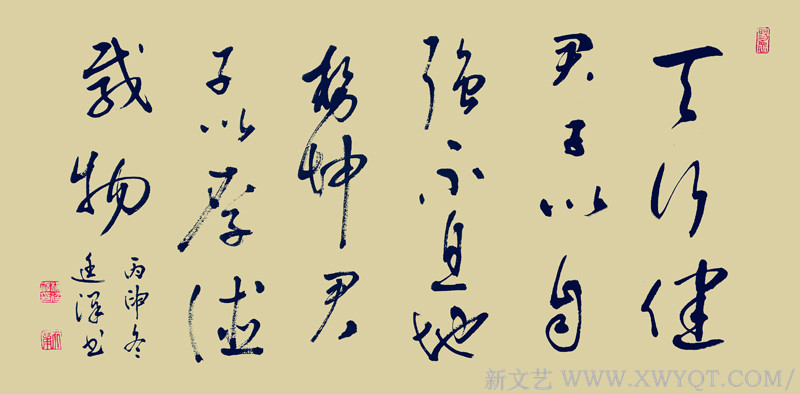 天行健
君子以自
強不息地
勢坤君
子以厚德
載物
丙申冬
书
新文艺 WWW.XWYQT.COM/